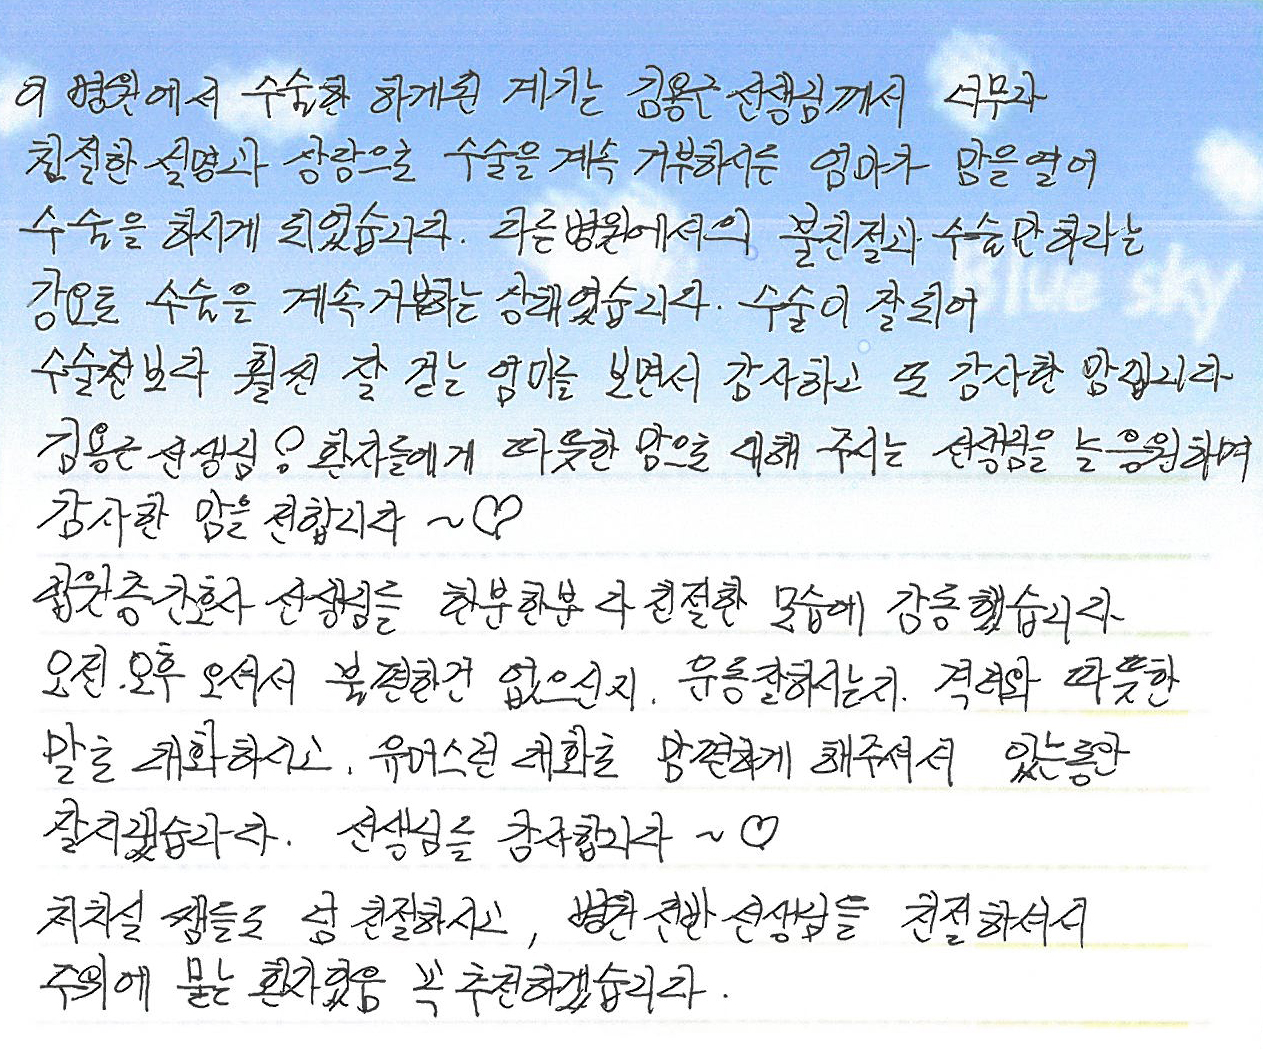 이 병원에서 수술을 하게된 계기는 김용근 선생님께서 너무나
친절한 설명과 상담으로 수술을 계속 거부하시든 엄마가 맘을 열어
수술을 하시게 되었습니다. 다른병원에서의 불친절과 수술만하라는
강요로 수술을 계속거부하는 상태였습니다. 수술이 잘되어
수술전보다 훨씬 잘 걷는 엄마를 보면서 감사하고 또 감사한 맘입니다
김용근 선생님 환자들에게 따뜻한 맘으로 대해 주시는 선생님을 늘 응원하며
감사한 맘을 전합니다 ~♡
간호사 선생님들 한분한분 다 친절한 모습에 감동했습니다
오전.오후 오셔서 불편한건 없으신지. 운동잘하시는지. 격려와 따뜻한
말로 대화하시고. 유머스런 대화로 맘편하게 해주셔서 있는동안
잘지냈습니다. 선생님들 감사합니다 ~♡
처치실 쌤들도 넘 친절하시고, 병원 전반 선생님들 친절하셔서
주위에 묻는 환자있음 꼭 추천하겠습니다.
Blue sky